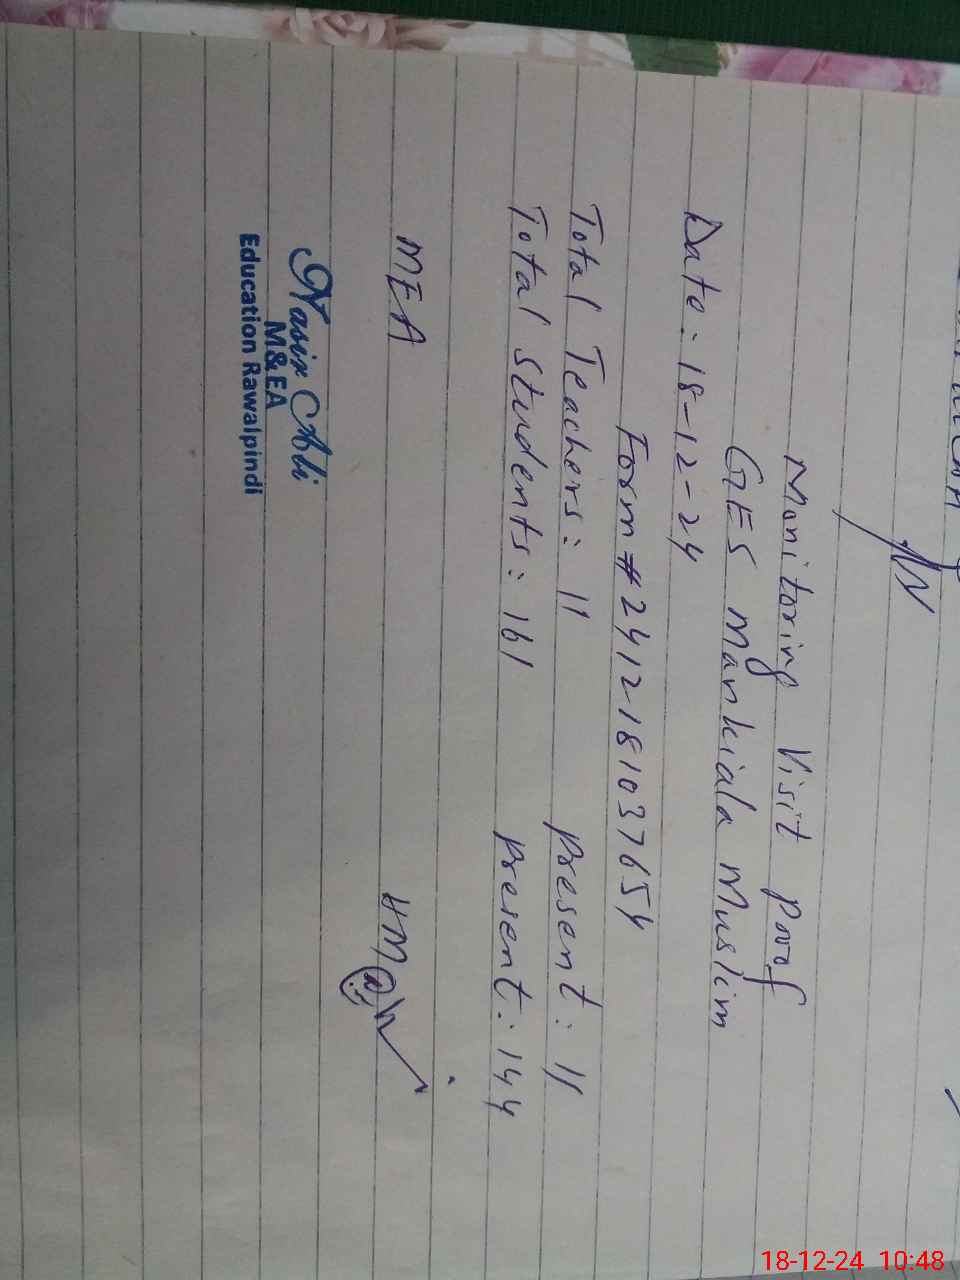 Monitoring Visit Proof
GES Mankiala Muslim
Date: 18-12-24
Form # 2412181037654
Total Teachers: 11 Present: 11
Total Students: 161 Present: 144
MEA HM
Nasir Ali
M&EA
Education Rawalpindi
18-12-24 10:48